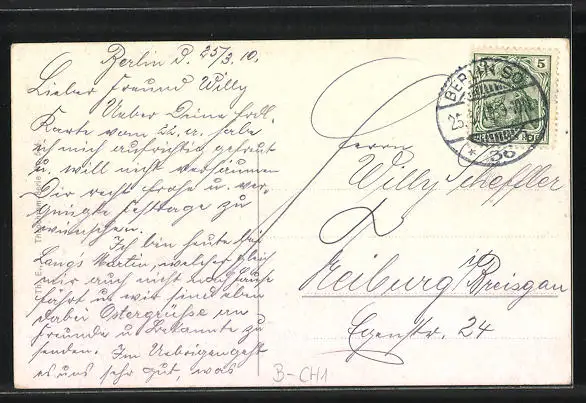 Berlin d. 25/3. 10.
Lieber Freund Willy
Ueber Deine frdl.
Karte vom 22. cr. habe
ich mich aufrichtig gefreut
u. will nicht versäumen
Dir recht frohe u. ver-
gnügte Festtage zu
wünschen.
Ich bin heute bei
Langs Martin, welcher gleich
mir auch nicht nach Hause
fährt u. wir sind eben
dabei Ostergrüsse an
Freunde u. Bekannte zu
senden. Im Uebrigen geht
es uns sehr gut, was
5
BERLIN SO
25.
* 36
Herrn
Willy Scheffler
Freiburg i/ Breisgau
Egonstr. 24
B-CH1